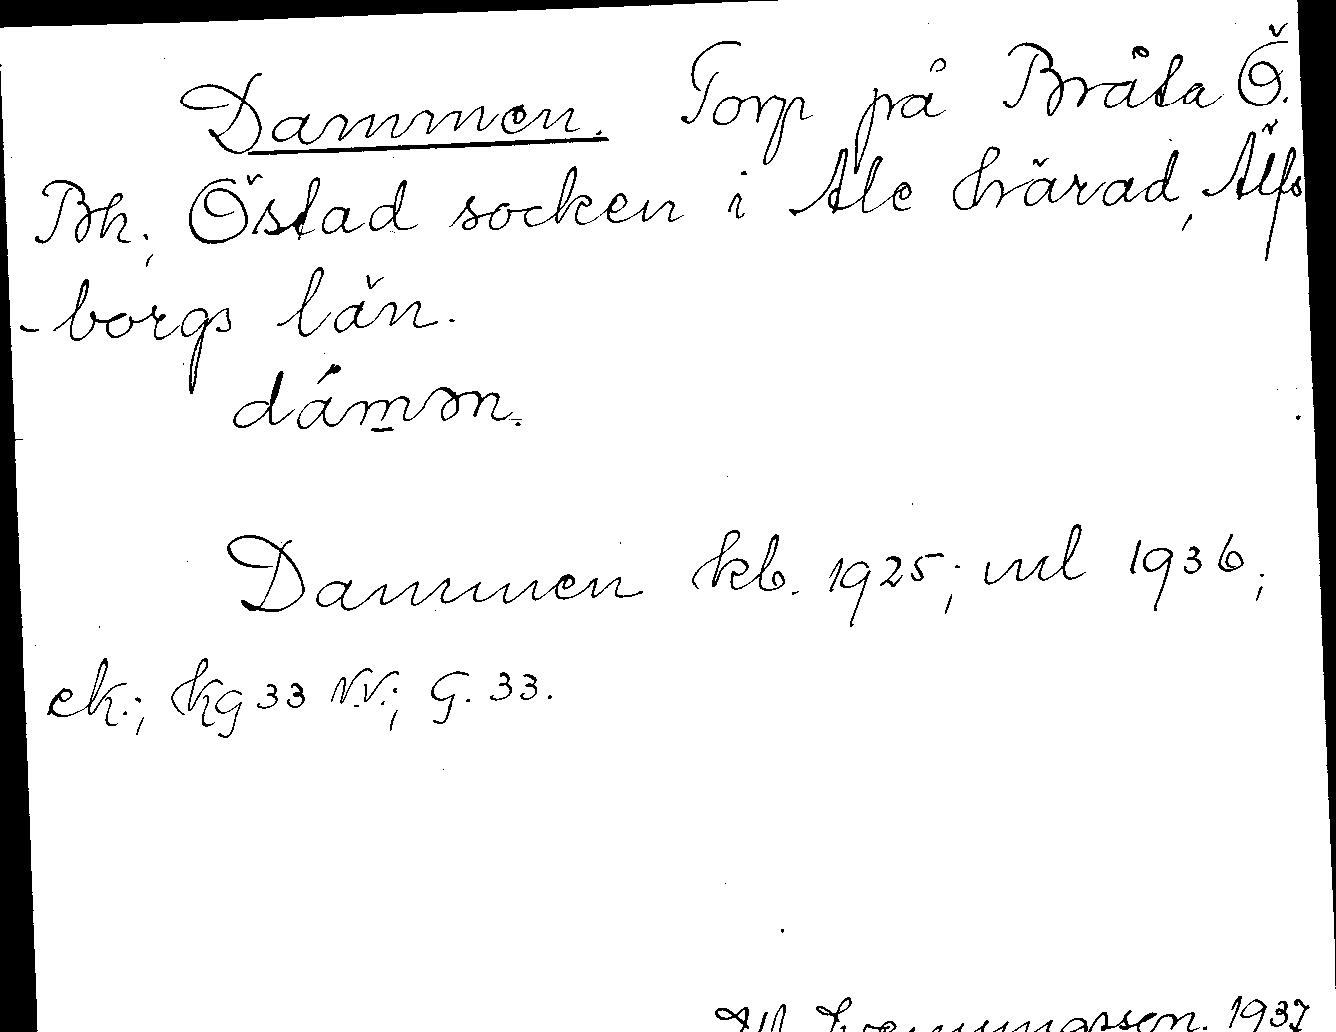 Dammen. Torp på Bråta Ö.
Bh; Östad socken i Ale härad, Älfs
-borgs län.
dámən.
Dammen kb. 1925; ml 1936;
ek.; kg 33 N.V.; G. 33.
1937